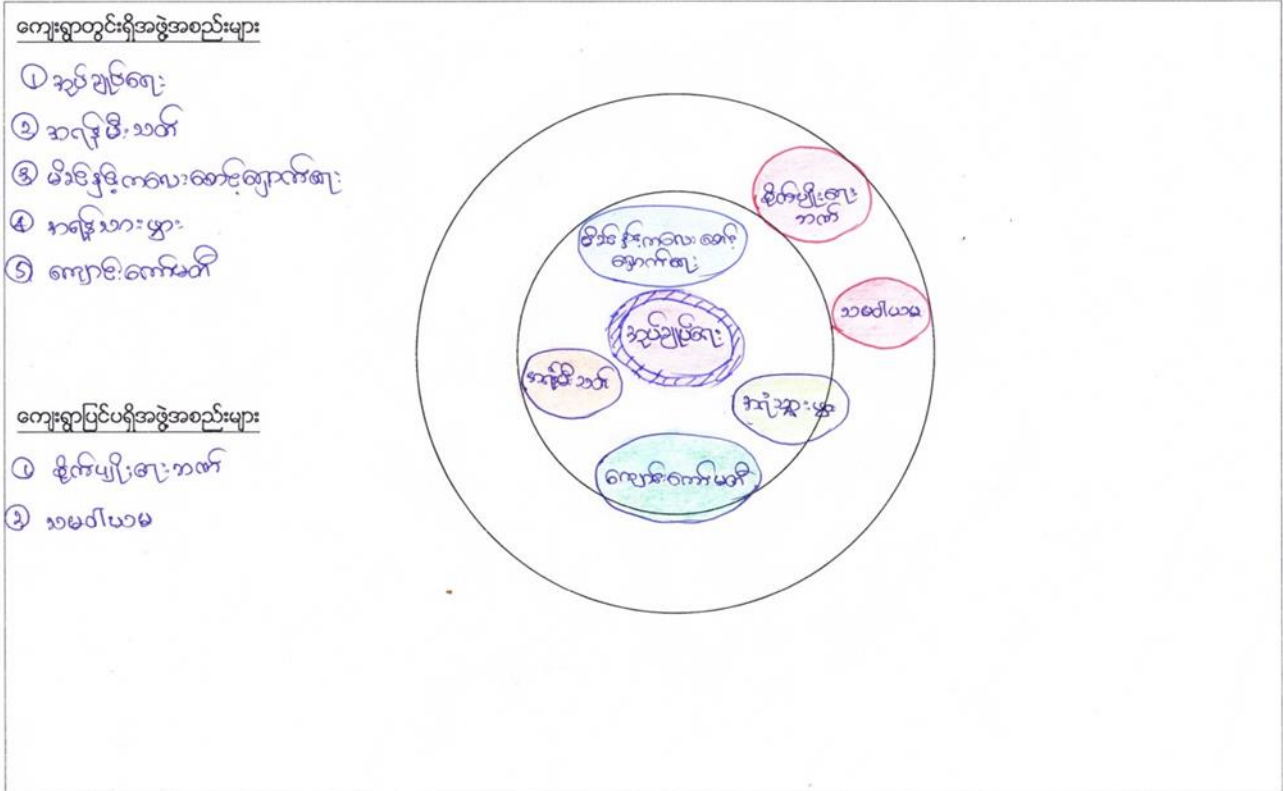 ကျေးရွာတွင်းရှိအဖွဲ့အစည်းများ
① အုပ်ချုပ်ရေး
② အရန်မီးသတ်
③ မိခင်နှင့်ကလေးစောင့်ရှောက်ရေး
④ အရံသားဖွား
⑤ ကျောင်းကော်မတီ
ကျေးရွာပြင်ပရှိအဖွဲ့အစည်းများ
① စိုက်ပျိုးရေးဘဏ်
② သမဝါယမ
စိုက်ပျိုးရေး
ဘဏ်
မိခင်နှင့်ကလေးစောင့်
ရှောက်ရေး
သမဝါယမ
အုပ်ချုပ်ရေး
အရန်မီးသတ်
အရံသားဖွား
ကျောင်းကော်မတီ